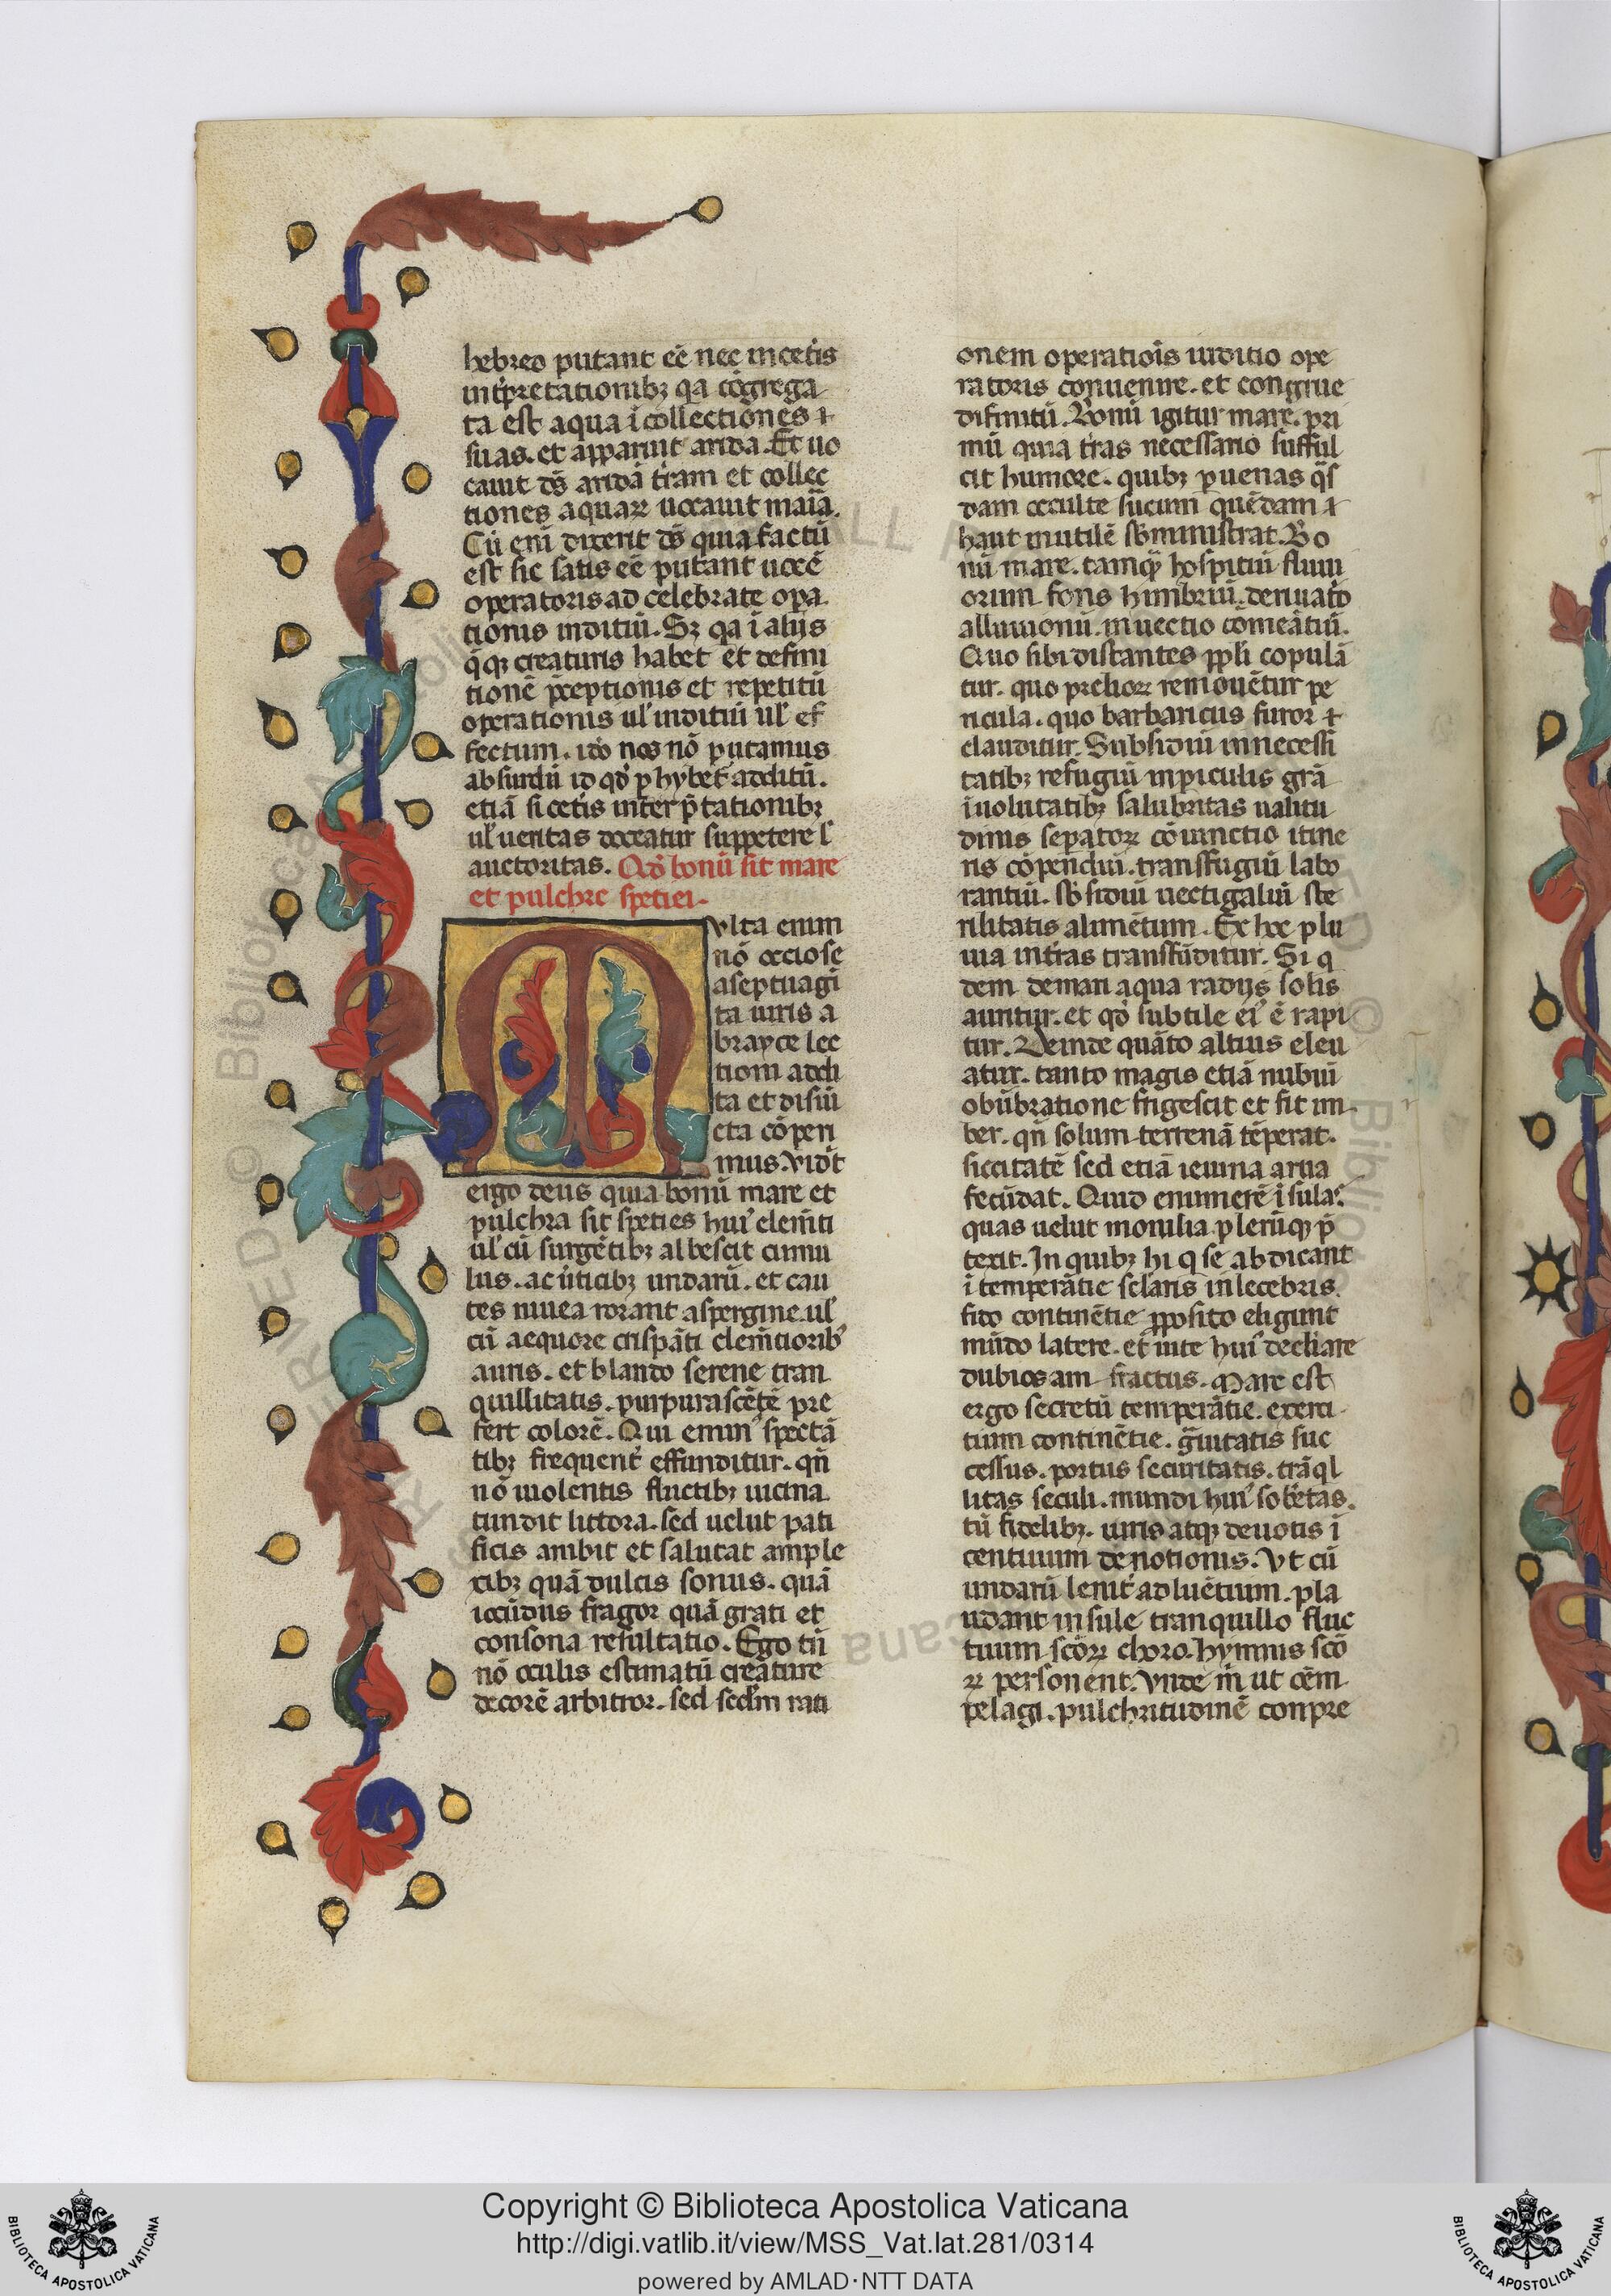 hebreo putant eē nec in cet̾is
int̾pretationibꝫ qa cōgrega
ta est aqua ī collectiones ⁊
suas. et apparuit arida. Et uo
cauit dꝰ aridā t̾ram et collec
tiones aquaꝝ uocauit maīa.
Cū eni dixerit dꝰ quia factū
est sic satis eē putant uocē
operatoris ad celebrate opa
tionis inditiū. Sꝫ qa ī alijs
qͥqꝫ creaturis habet et defini
tionē p̄ceptionis et repetitū
operationis ul̓ inditiū ul̓ ef
fectum. ido nos nō putamus
absurdū id qđ p hyƀet̾ additū.
etiā si cet̾is interp̄tationibꝫ
ul̓ ueritas doceatur suppetere l̓
auctoritas. Qđ bonū sit mare
et pulchre spetiei.
Multa enim
nō occiose
a septuagī
ta uiris a
brayce lec
tioni addi
ta et disiū
cta cōperi
mus. Vidt̾
ergo deus quia bonū mare et
pulchra sit speties huiꝰ elem̄ti
ul̓ cū surgētibꝫ albescit cumu
lus. ac ūticibꝫ undarū. et cau
tes niuea rorant aspergine. ul̓
cū aequore crispāti clem̄tioribꝰ
auris. et blando serene tran
quillitatis. purpurascētē pre
fert colorē. Qui eminꝰ spectā
tibꝫ frequent̾ effunditur. qn̄
nō uiolentis fluctibꝫ uicina
tundit littora. sed uelut pati
ficis ambit et salutat ample
xibꝫ quā dulcis sonus. quā
iocūdus fragor quā grati et
consona resultatio. Ego tn̄
nō oculis estimatū creature
decorē arbitror. sed secdm̄ rati
onem operatiois iuditio ope
ratoris conuenire. et congrue
difinitū. Bonū igitur mare. pri
mū quia t̾ras necessario sufful
cit humore. quibꝫ p uenas qͣs
dam occulte sucum quēdam ⁊
haut inutilē sƀministrat. Bo
nū mare. tamqꝫ hospitiū fluui
orum fons himbriū. deriuatō
alluuionū. inuectio comeātiū.
Quo sibi distantes ppli copulā
tur. quo prelioꝝ remouētur pe
ricula. quo barbaricus furor ⁊
clauditur. Subsidiū in necessi
tatibꝫ refugiū in piculis grā
ī uolutatibꝫ salubritas ualitu
dinis sepatoꝝ cōiunctio itine
ris cōpendiū. transfugiū labo
rantiū. sƀsidiū uectigaliū ste
rilitatis alimētum. Ex hoc plu
uia in t̾ras transfūditur. Si q
dem de mari aqua radijs solis
auritur. et qđ subtile eiꝰ ē rapi
tur. Deinde quāto altius eleu
atur. tanto magis etiā nubiū
obūbratione frigescit et fit im
ber. qn̄ solum terrenā tēperat
siccitatē sed etiā ieiuna arua
fecūdat. Quid enumerē īsulas.
quas uelut monilia plerūqꝫ p̄
texit. In quibꝫ hi q se abdicant
ītemperātie sclaris inlecebris.
fido continētie pposito eligunt
mūdo latere. et uite huiꝰ decliare
dubios amfractus. Mare est
ergo secretū temperātie. exerci
tium continētie. gͣuitatis suc
cessus. portus securitatis. trāql
litas seculi. mundi huiꝰ sobͥetas.
tū fidelibꝫ. uiris atqꝫ deuotis ī
centiuum deuotionis. Vt cū
undarū lenit̾ adluētium. pla
udant insule tranquillo fluc
tuum scōꝝ choro. hymnis scō
ꝝ personent. Vnde m̄ ut oēm
pelagi. pulchritudinē conpre
Copyright © Biblioteca Apostolica Vaticana
http://digi.vatlib.it/view/MSS_Vat.lat.281/0314
powered by AMLAD·NTT DATA
BIBLIOTECA APOSTOLICA VATICANA
BIBLIOTECA APOSTOLICA VATICANA